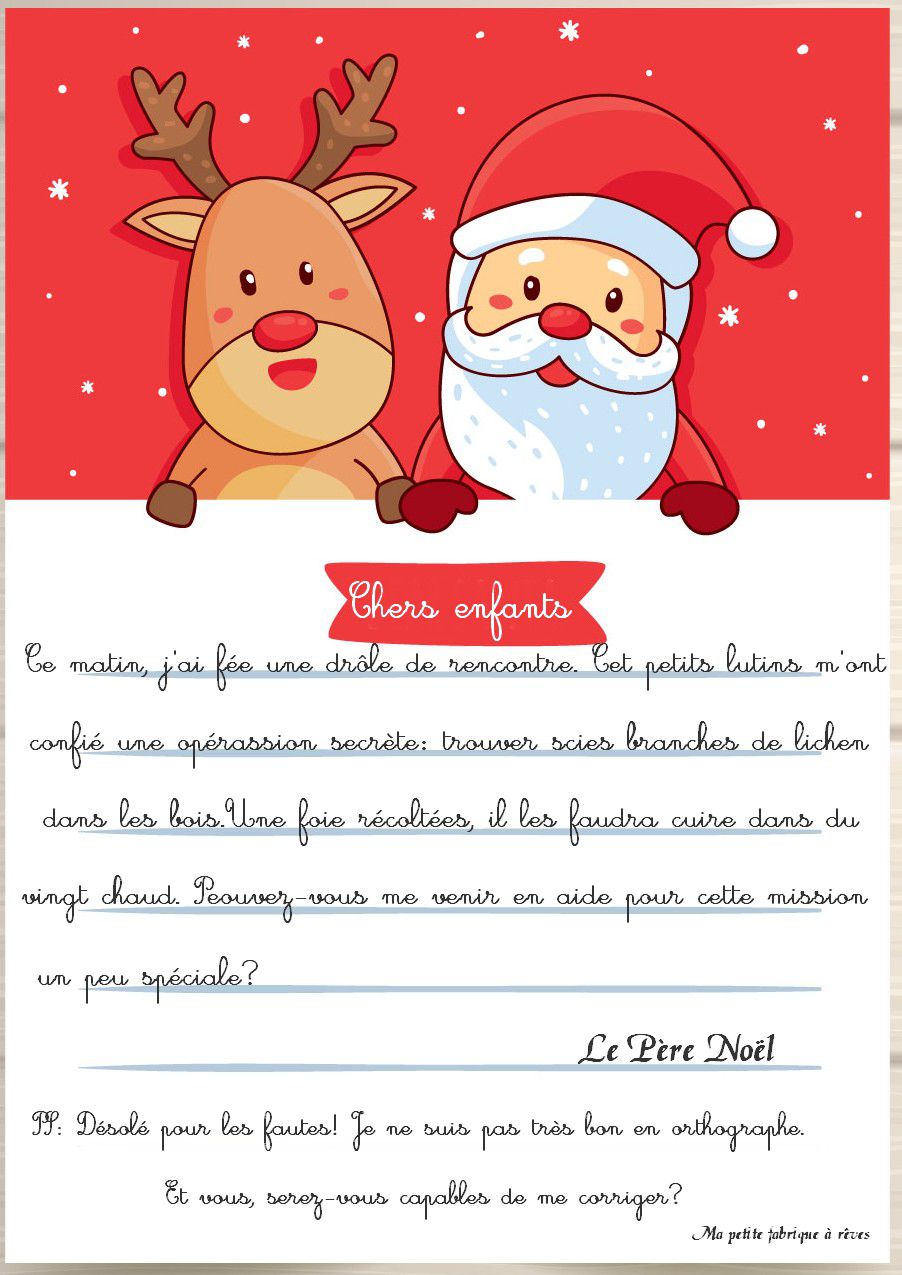 Chers enfants
Ce matin, j'ai fée une drôle de rencontre. Cet petits lutins m'ont
confié une opérassion secrète: trouver scies branches de lichen
dans les bois.Une foie récoltées, il les faudra cuire dans du
vingt chaud. Peouvez-vous me venir en aide pour cette mission
un peu spéciale?
Le Père Noël
PS: Désolé pour les fautes! Je ne suis pas très bon en orthographe.
Et vous, serez-vous capables de me corriger?
Ma petite fabrique à rêves